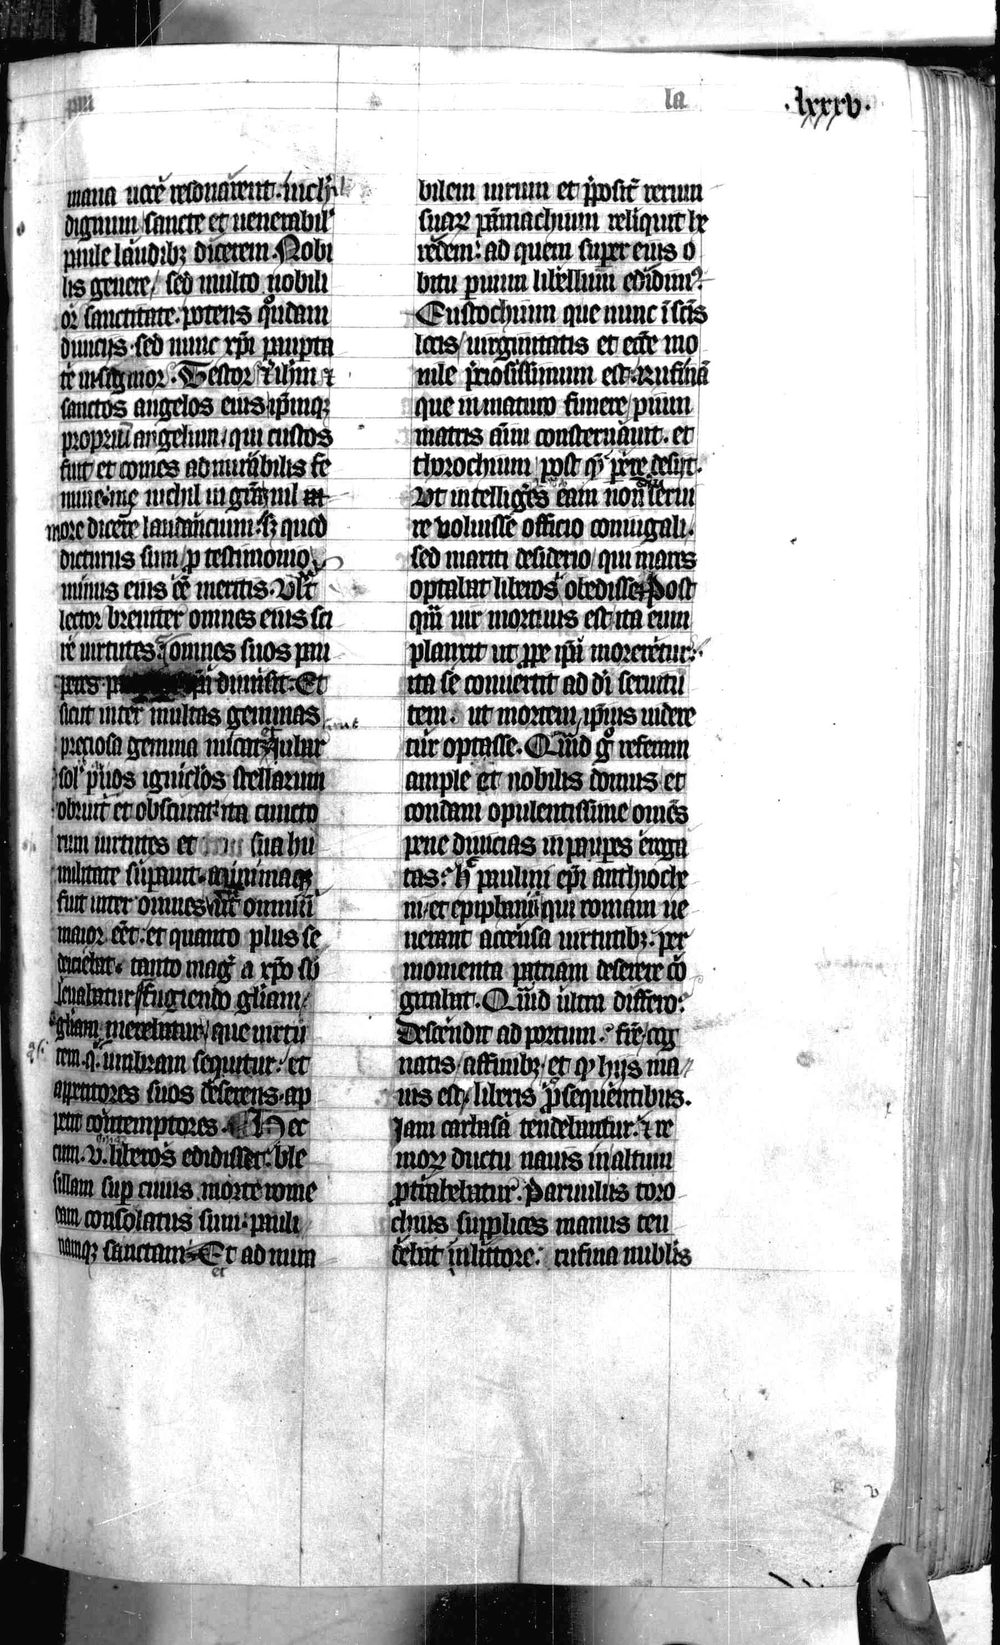 pau
la
.lxxxv.
mana uoce resonarent. nichil
dignum sancte et uenerabil'
paule laudibꝫ dicerem. Nobi
lis genere/ sed multo nobili
or sanctitate. potens quondam
diuicijs. sed nunc xp̄i paupta
te insignior. Testor
sanctos angelos eius ip̄mqꝫ
propriū angelum/ qui custos
fuit et comes admirabilis fe
mine. me nichil in gratiam nil
more dicere laudancium. sꝫ quod
dicturus sum/ p testimonio
minus eius eē meritis. Vult
lector breuiter omnes eius sci
re uirtutes. omnes suos pau
peres dimisit. Et
sicut inter multas gemmas
preciosa gemma micat iubar
sol' p̄uos igniclos stellarum
obruit et obscurat. ita cuncto
rum uirtutes et sua hu
militate supauit. minimaqꝫ
fuit inter omnes ut omniū
maior eēt. et quanto plus se
deiciebat. tanto mag' a xp̄o sb
leuabatur fugiendo gl'iam/
gl'iam merebatur/ que uirtu
tem umbram sequitur. et
appetitores suos deserens. ap
petit contemptores. Hec
cum. v. liberos edidisset. ble
sillam sup cuius morte rome
eam consolatus sum. pauli
namqꝫ sanctam Et ad mira
et
bilem uirum et p̄posit' rerum
suaꝝ pāmachium reliquit he
redem. ad quem super eius o
bitu paruum libellum edidim'.
Eustochium que nunc ī sc̄is
locis/ uirginitatis et ecc̄e mo
nile p̄ciosissimum est. Rufinā
que inmaturo funere/ pium
matris aīm consternauit. et
thorochium/ post q̄ p̄ere desiit.
Vt intelliges eam non serui
re voluisse officio coniugali.
sed mariti desiderio/ qui mares
optabat liberos obedisse. Post
qm̄ uir mortuus est ita eum
planxit ut ppe ip̄a moreretur.
ita se conuertit ad dn̄i seruitu
tem. ut mortem ip̄ius uidere
tur optasse. Quid g° referam
ample et nobilis domus et
condam opulentissime omēs
pene diuicias in paupes eroga
tas. paulini ep̄i anthioche
ni. et epiphanij qui romam ue
nerant accensa uirtutibꝫ. per
momenta patriam deserere co
gitabat. Quid ultra differo.
Descendit ad portum. fr̄e/ cog
natis/ affinibꝫ/ et q̄ hijs ma
ius est/ liberis p̄sequentibus.
Iam carbasa tendebantur. et re
moꝝ ductu nauis in altum
ptrahebatur. Paruulus toro
chius supplices manus ten
debat in littore. rufina nubilis